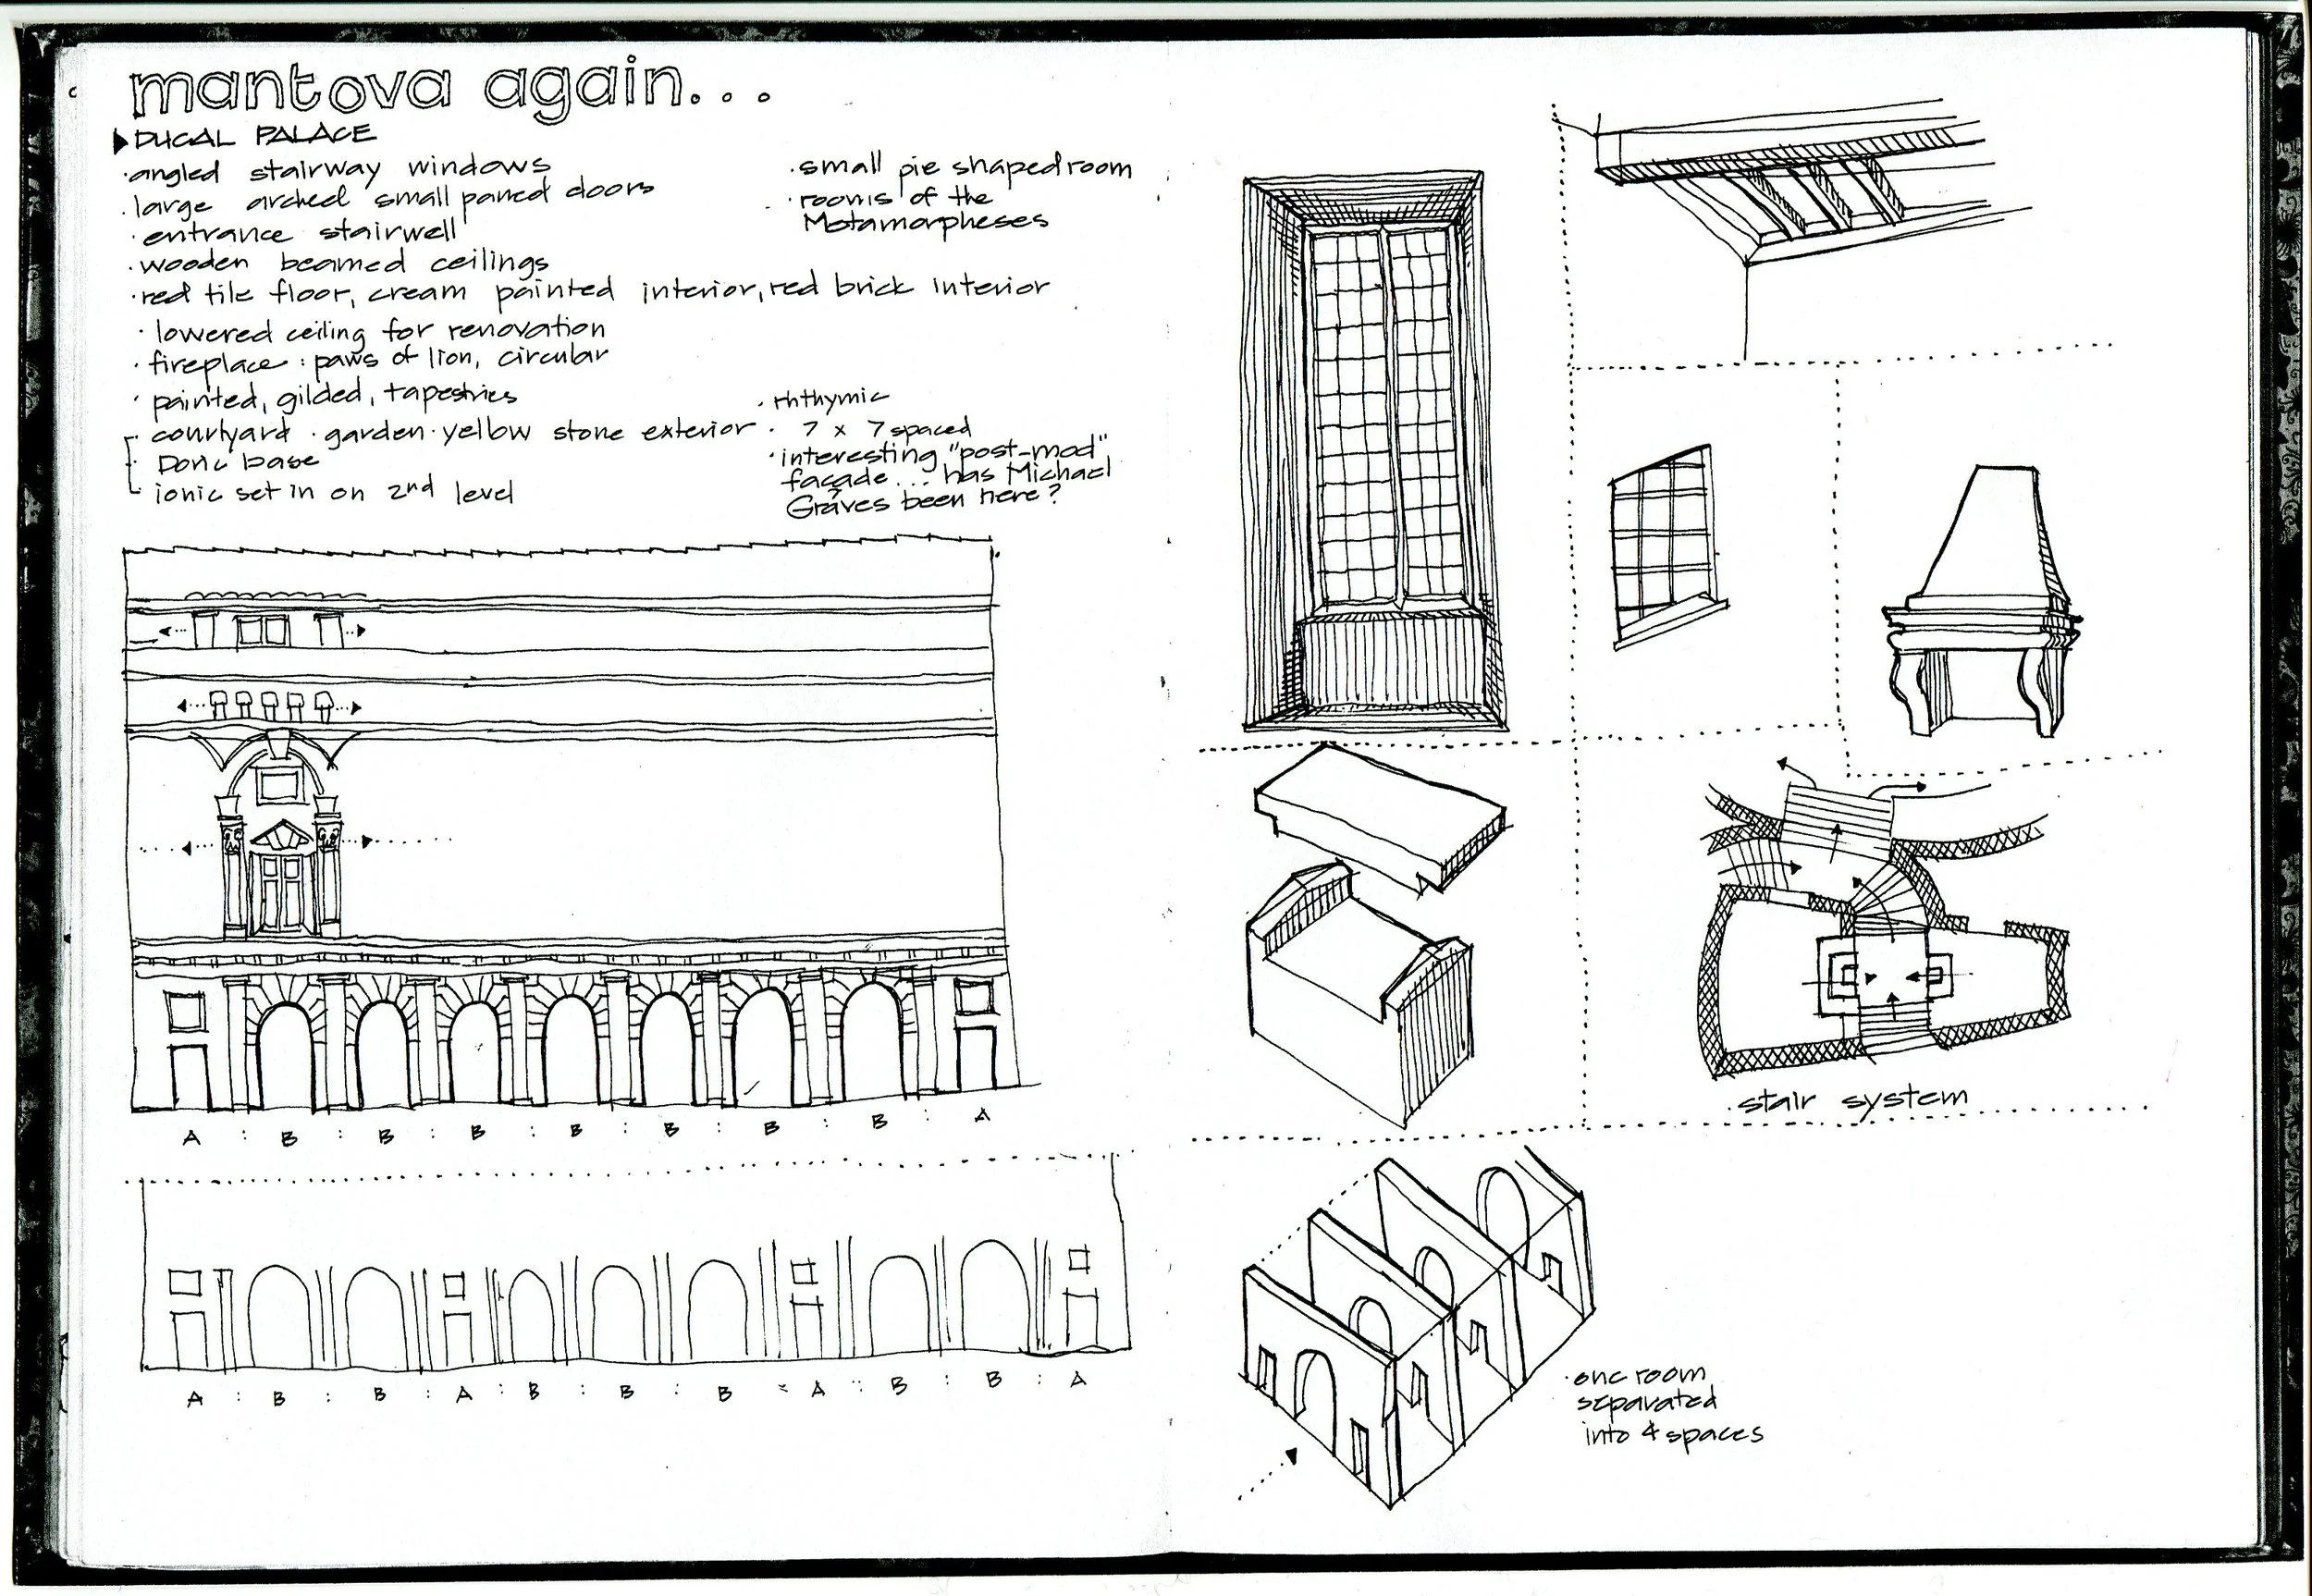 mantova again...
DUCAL PALACE
·angled stairway windows
·large arched small paned doors
·entrance stairwell
·wooden beamed ceilings
·red tile floor, cream painted interior, red brick interior
·lowered ceiling for renovation
·fireplace: paws of lion, circular
·painted, gilded, tapestries
·courtyard · garden · yellow stone exterior
Doric base
ionic set in on 2nd level
·small pie shaped room
·rooms of the
Metamorpheses
·rhthymic
· 7 x 7 spaced
·interesting "post-mod"
façade... has Michael
Graves been here?
A : B : B : B : B : B : B : B : A
A : B : B : A : B : B : B : A : B : B : A
·stair system
·one room
separated
into 4 spaces